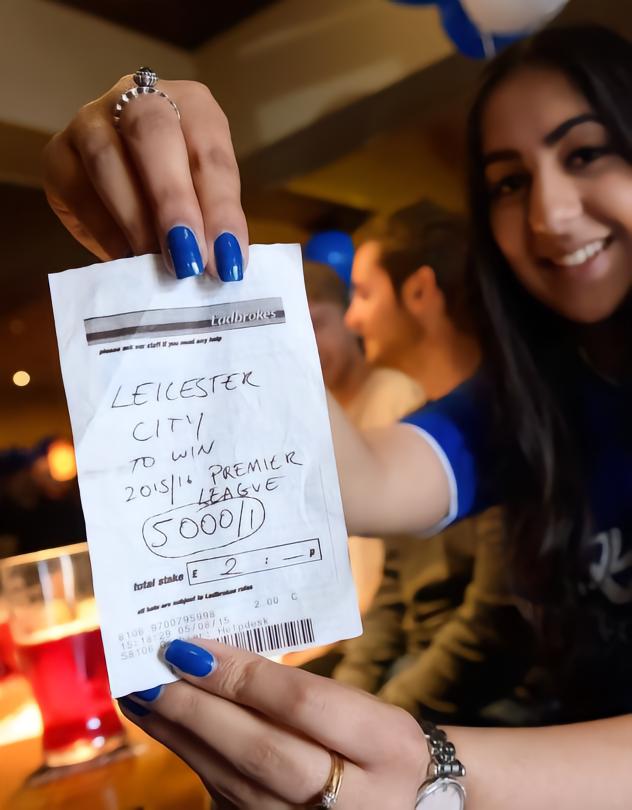 Ladbrokes
please ask our staff if you need any help
LEICESTER
CITY
TO WIN
2015/16 PREMIER
LEAGUE
5000/1
total stake £ 2 : — p
all bets are subject to Ladbrokes rules
2.00 C
8106 9700795998
15:18:29 05/08/15
58106 Helpdesk